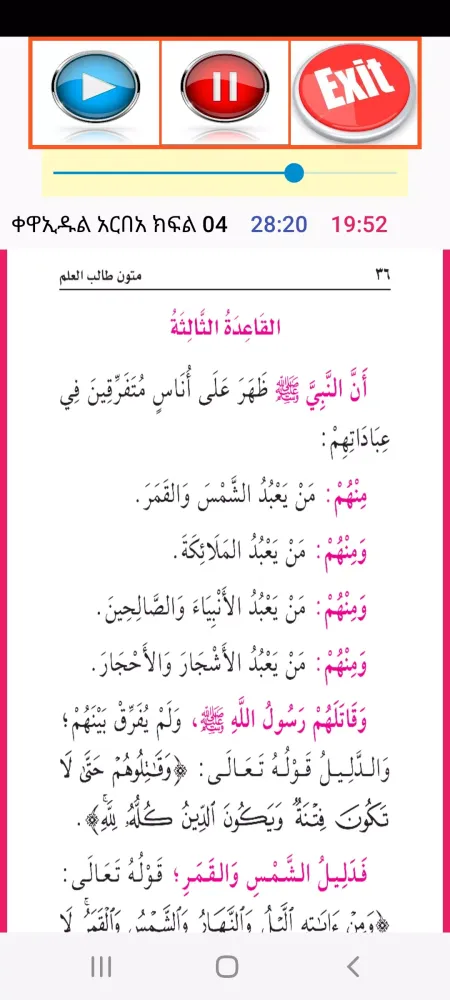 Exit
ቀዋኢዱል አርበአ ክፍል 04 28:20 19:52
متون طالب العلم ٣٦
القَاعِدَةُ الثَّالِثَةُ
أَنَّ النَّبِيَّ ﷺ ظَهَرَ عَلَى أُنَاسٍ مُتَفَرِّقِينَ فِي
عِبَادَاتِهِمْ:
مِنْهُمْ: مَنْ يَعْبُدُ الشَّمْسَ وَالقَمَرَ.
وَمِنْهُمْ: مَنْ يَعْبُدُ المَلَائِكَةَ.
وَمِنْهُمْ: مَنْ يَعْبُدُ الأَنْبِيَاءَ وَالصَّالِحِينَ.
وَمِنْهُمْ: مَنْ يَعْبُدُ الأَشْجَارَ وَالأَحْجَارَ.
وَقَاتَلَهُمْ رَسُولُ اللَّهِ ﷺ، وَلَمْ يُفَرِّقْ بَيْنَهُمْ؛
وَالدَّلِيلُ قَوْلُهُ تَعَالَى: ﴿وَقَٰتِلُوهُمْ حَتَّىٰ لَا
تَكُونَ فِتْنَةٌ وَيَكُونَ ٱلدِّينُ كُلُّهُۥ لِلَّهِۚ﴾.
فَدَلِيلُ الشَّمْسِ وَالقَمَرِ؛ قَوْلُهُ تَعَالَى:
﴿وَمِنْ ءَايَٰتِهِ ٱلَّيْلُ وَٱلنَّهَارُ وَٱلشَّمْسُ وَٱلْقَمَرُۚ لَا